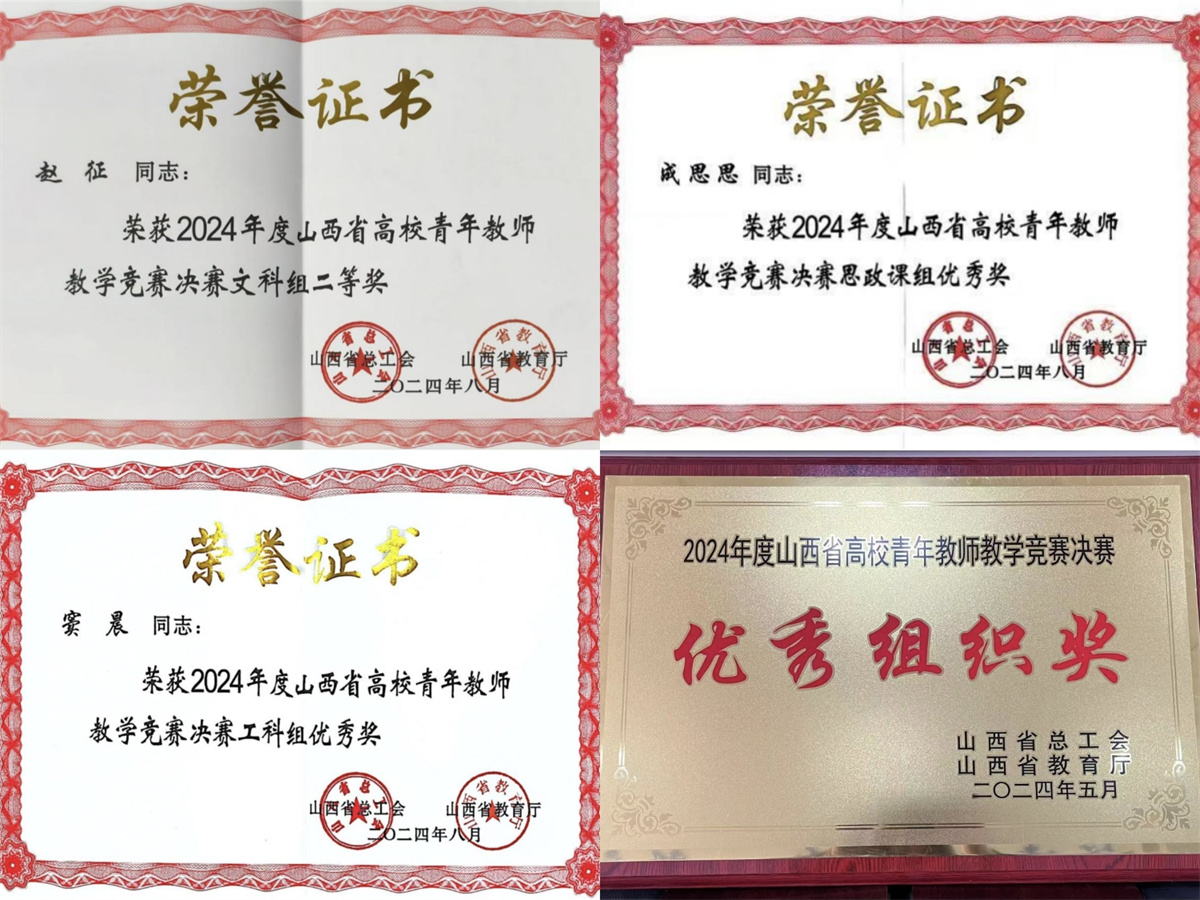 荣誉证书
赵 征 同志：
荣获2024年度山西省高校青年教师
教学竞赛决赛文科组二等奖
山西省总工会 山西省教育厅
二〇二四年八月
荣誉证书
成思思 同志：
荣获2024年度山西省高校青年教师
教学竞赛决赛思政课组优秀奖
山西省总工会 山西省教育厅
二〇二四年八月
荣誉证书
窦 晨 同志：
荣获2024年度山西省高校青年教师
教学竞赛决赛工科组优秀奖
山西省总工会 山西省教育厅
二〇二四年八月
2024年度山西省高校青年教师教学竞赛决赛
优秀组织奖
山西省总工会
山西省教育厅
二〇二四年五月